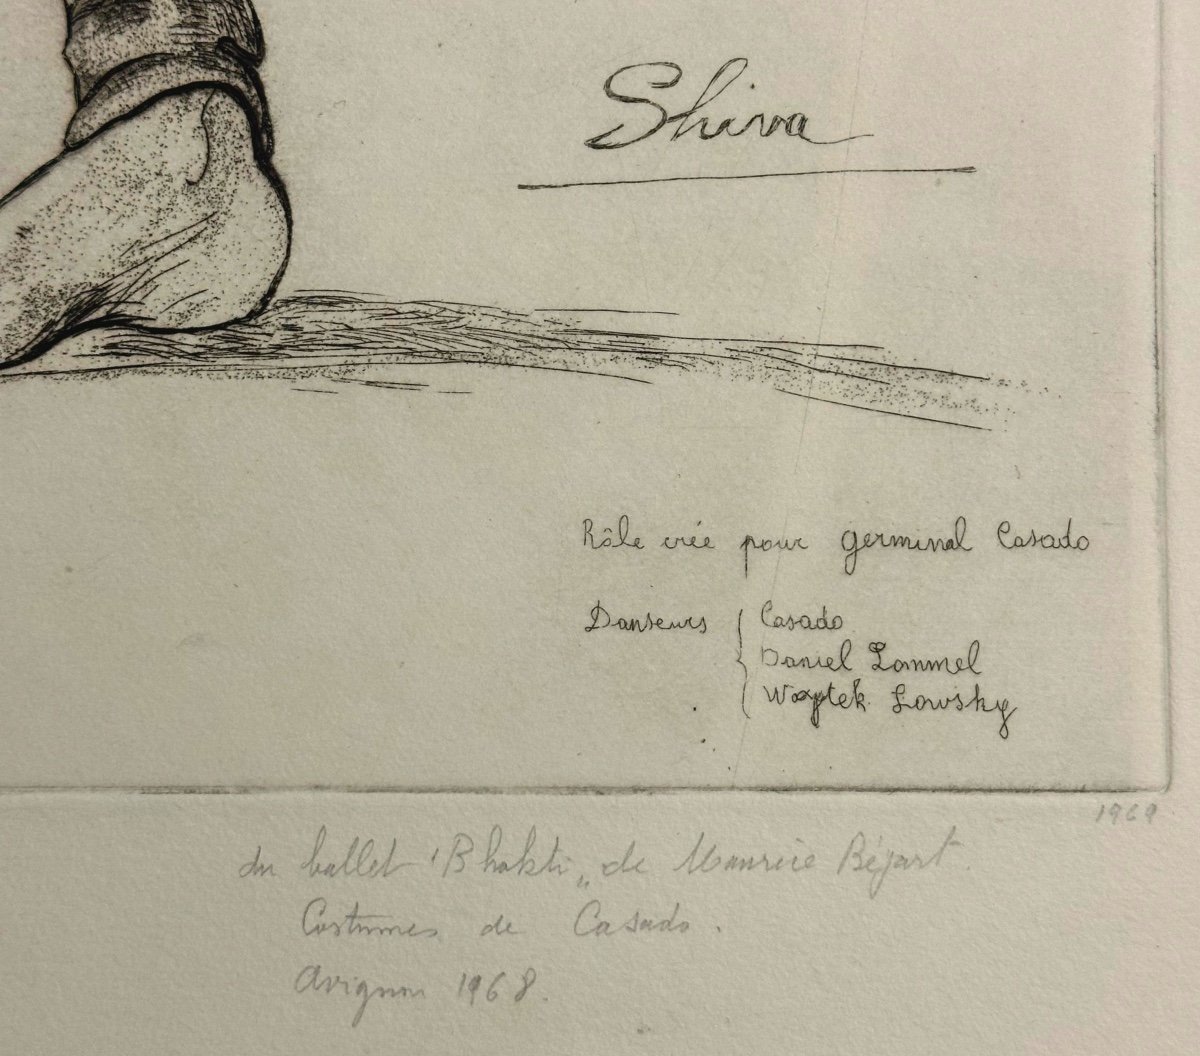 Shiva
Rôle crée pour germinal Casado
Danseurs { Casado
Daniel Lommel
Woytek Lowsky
1969
du ballet "Bhakti" de Maurice Béjart.
Costumes de Casado.
Avignon 1968.